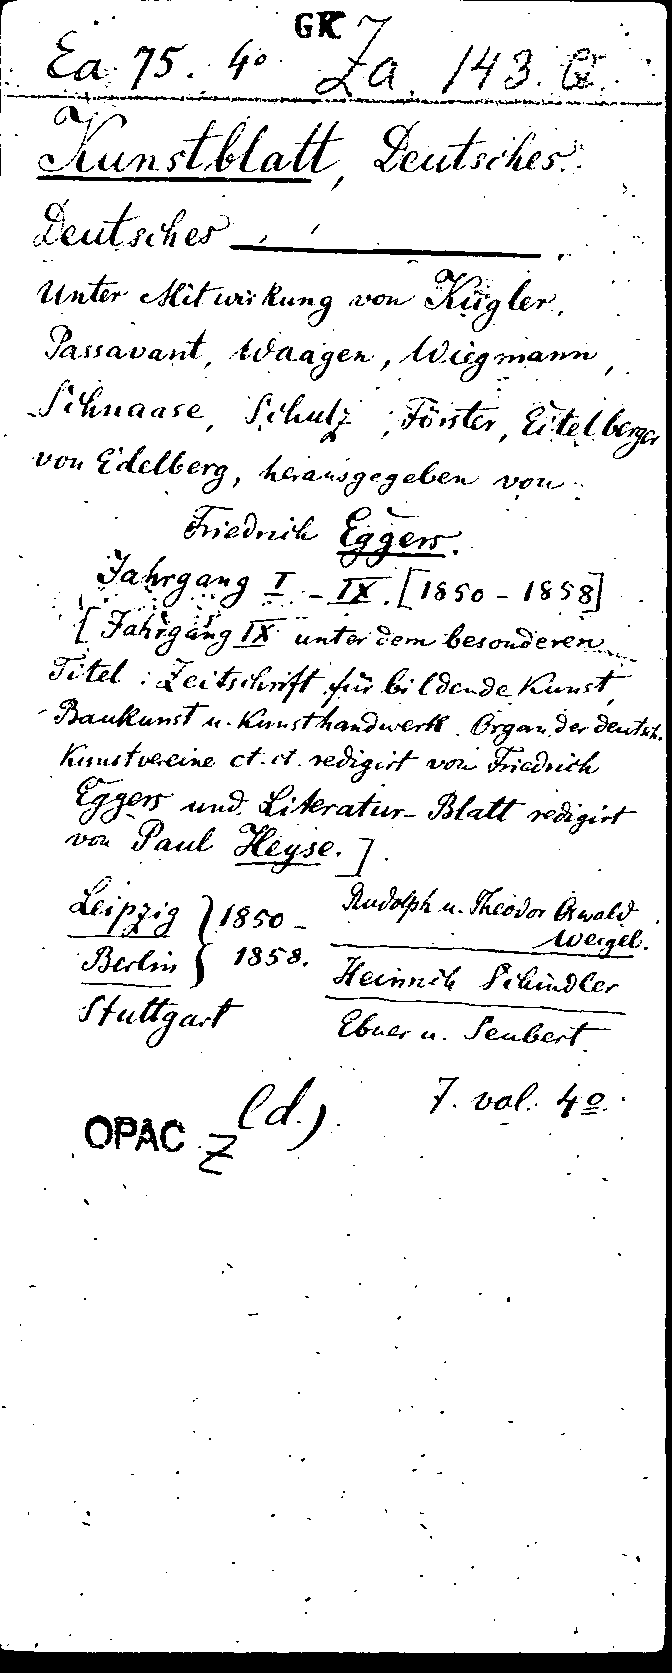 GK Z
Ea 75. 4o Za. 143. C.
Kunstblatt, Deutsches.
Deutsches
Unter Mitwirkung von Kugler,
Passavant, Waagen, Wiegmann,
Schnaase, Schulz, Förster, Eitelberger
von Edelberg, herausgegeben von
Friedrich Eggers.
Jahrgang I - IX. [1850 - 1858]
[Jahrgang IX unter dem besonderen
Titel: Zeitschrift für bildende Kunst,
Baukunst u. Kunsthandwerk. Organ der deutsch.
Kunstvereine ct. ct. redigirt von Friedrich
Eggers und Literatur-Blatt redigirt
von Paul Heyse.]
Leipzig } 1850 - Rudolph u. Theodor Oswald
Weigel.
Berlin } 1858. Heinrich Schindler
Stuttgart Ebner u. Seubert
7. vol. 4o.
(d.)
OPAC Z